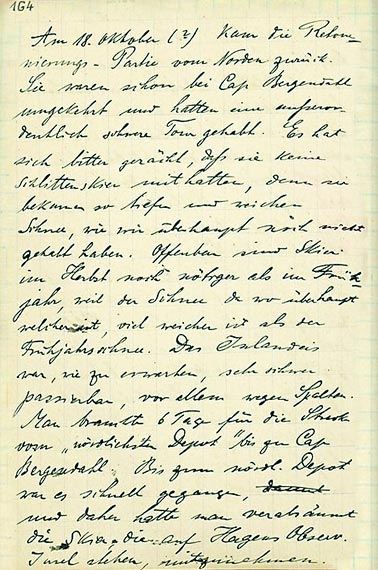 164
Am 18. Oktober (?) kam die Rekog-
niscierungs-Partie vom Norden zurück.
Sie waren schon bei Cap Bergendahl
umgekehrt und hatten eine ausseror-
dentlich schwere Tour gehabt. Es hat
sich bitter gerächt, dass sie keine
Schlittenskier mithatten, denn sie
bekamen so tiefen und weichen
Schnee, wie wir überhaupt noch nicht
gehabt haben. Offenbar sind Skier
im Herbst noch nötiger als im Früh-
jahr, weil der Schnee da wo überhaupt
welcher ist, viel weicher ist als der
Frühjahrsschnee. Das Inlandeis
war, wie zu erwarten, sehr schwer
passierbar, vor allem wegen Spalten.
Man brauchte 6 Tage für die Strecke
vom „nördlichsten Depot" bis zu Cap
Bergendahl. Bis zum nördl. Depot
war es schnell gegangen, damit
und daher hatte man versäumt
die Skier die auf Hagens Observ.
Insel stehen, mitzunehmen.